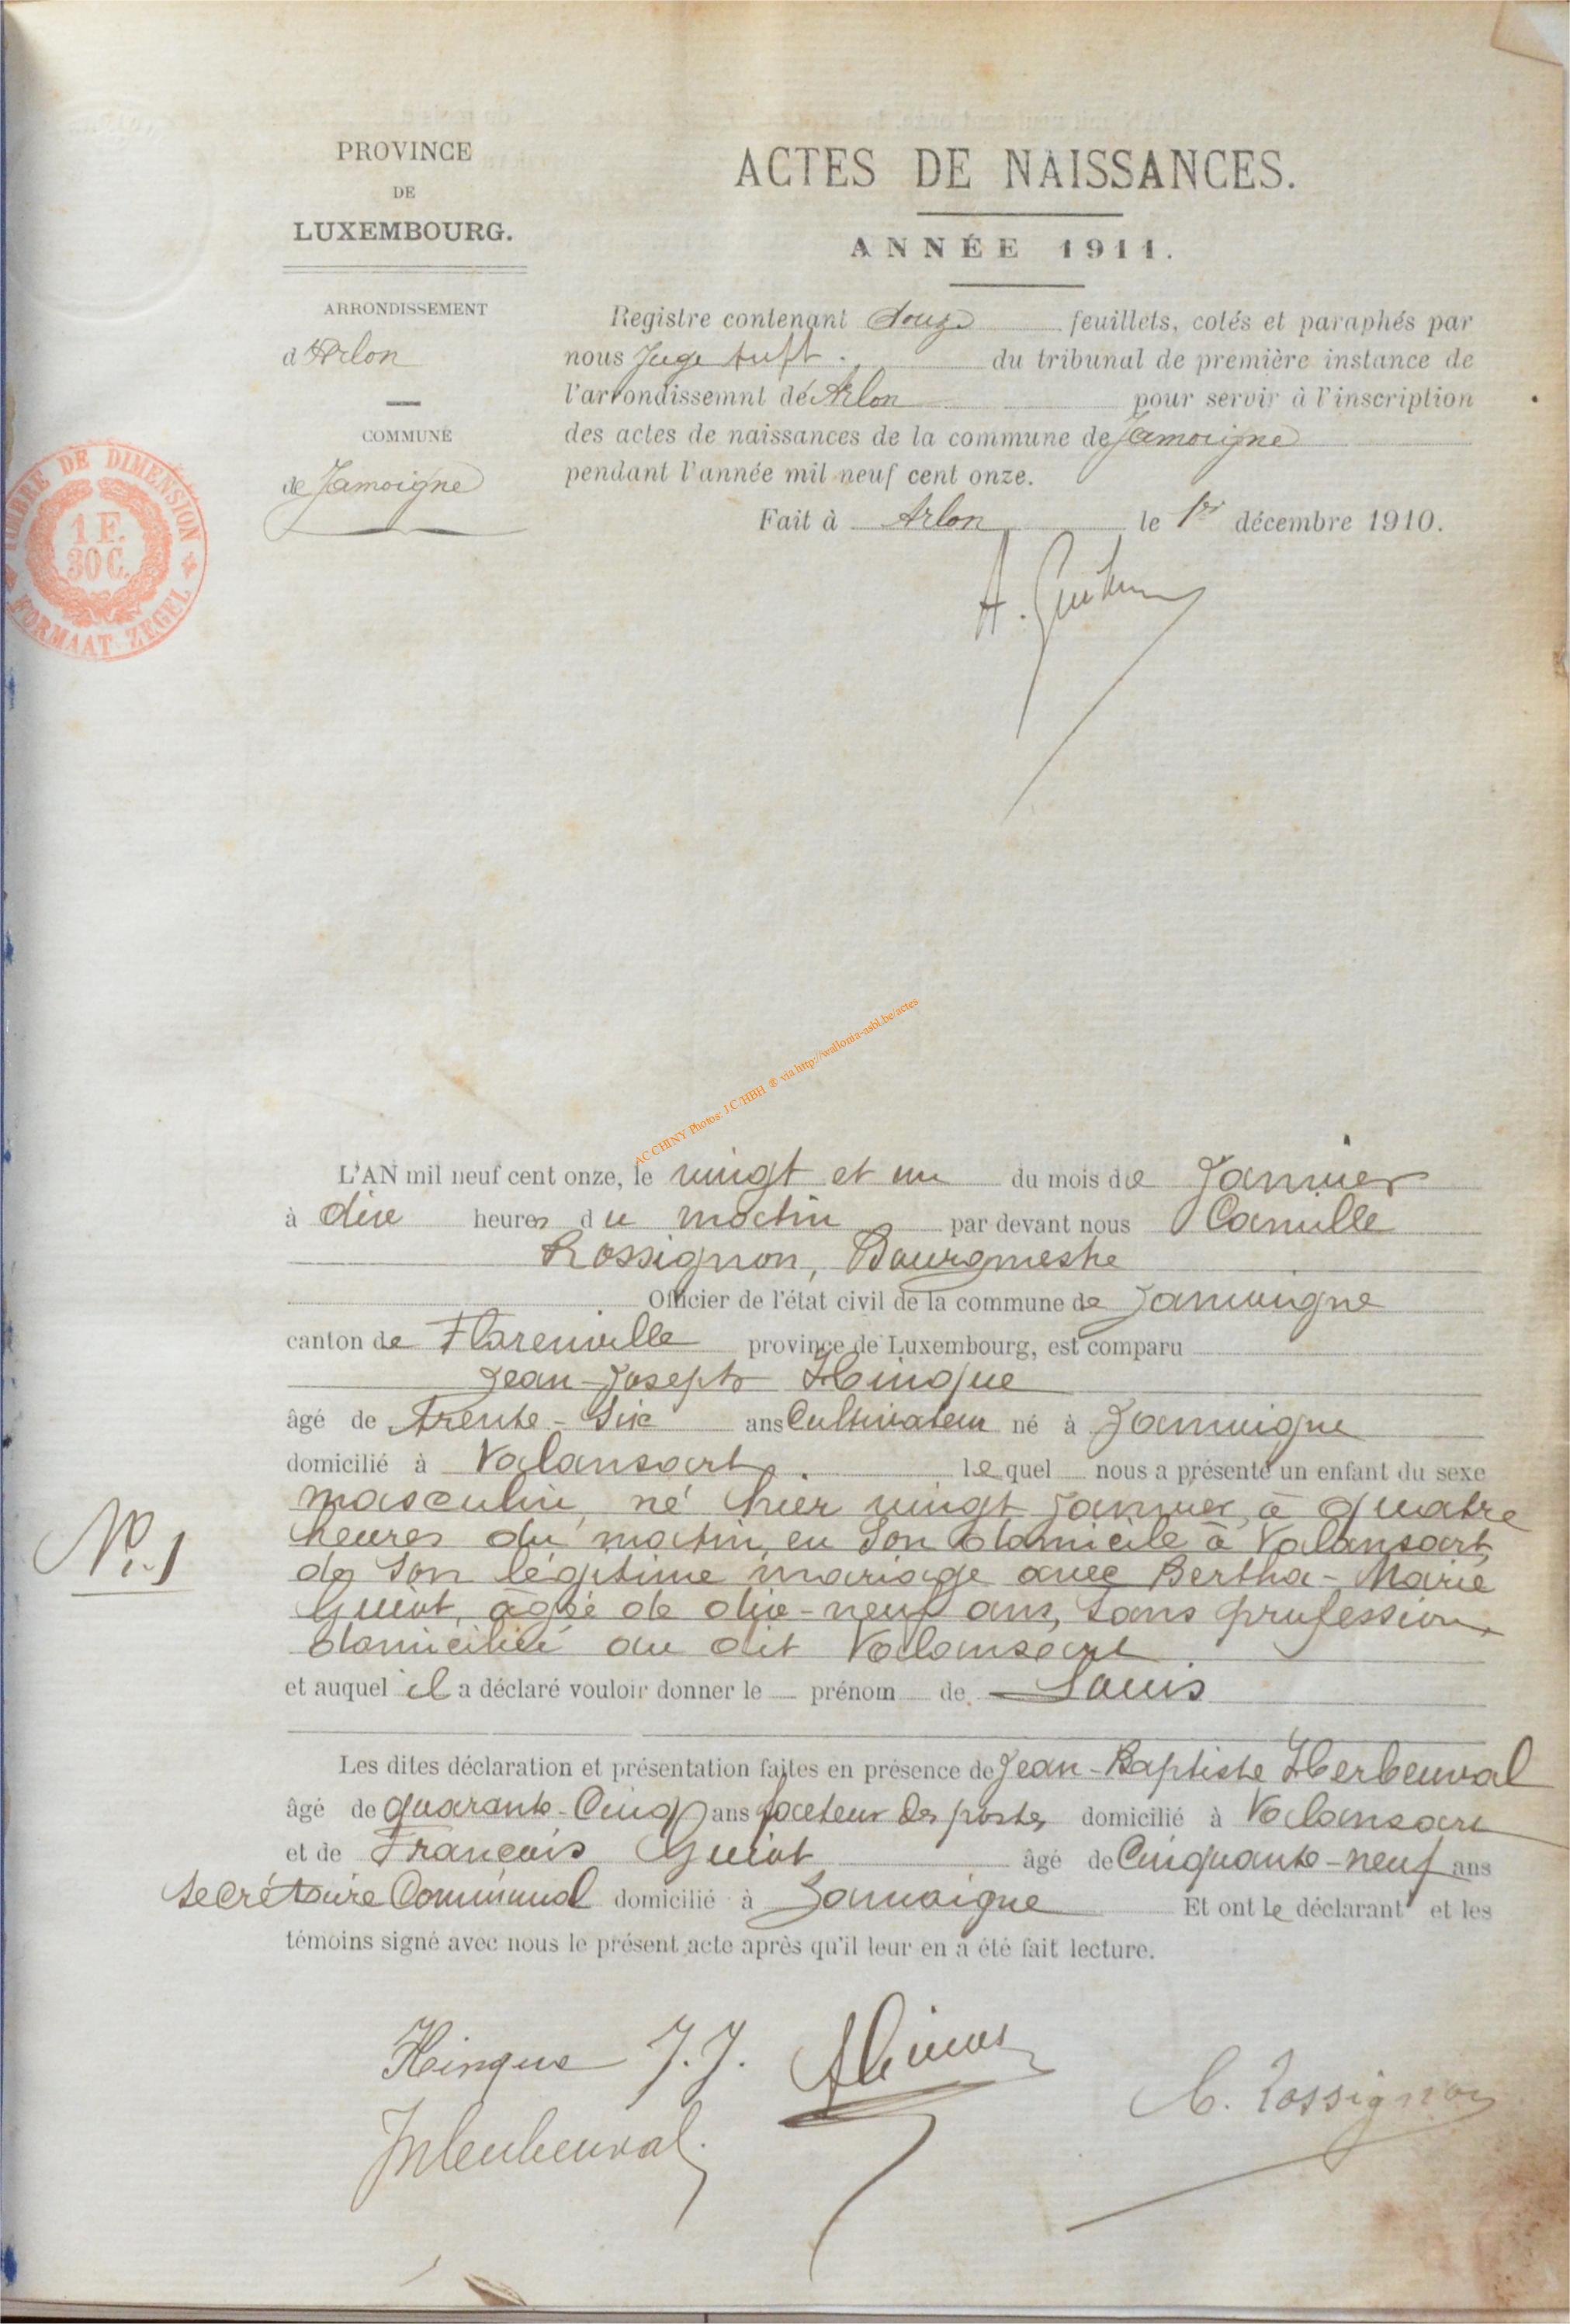 PROVINCE
DE
LUXEMBOURG.
ARRONDISSEMENT
d'Arlon
COMMUNE
de Jamoigne
TIMBRE DE DIMENSION
1 F.
30 C.
FORMAAT ZEGEL
ACTES DE NAISSANCES.
ANNÉE 1911.
Registre contenant douze feuillets, cotés et paraphés par
nous Juge suppt. du tribunal de première instance de
l'arrondissemnt de Arlon pour servir à l'inscription
des actes de naissances de la commune de Jamoigne
pendant l'année mil neuf cent onze.
Fait à Arlon le 1er décembre 1910.
AC CHINY Photos: J.C/HBH ® via http://wallonia-asbl.be/actes
L'AN mil neuf cent onze, le vingt et un du mois de Janvier
à dix heures du matin par devant nous Camille
Rossignon, Bourgmestre
Officier de l'état civil de la commune de Jamoigne
canton de Florenville province de Luxembourg, est comparu
Jean-Joseph Hinque
âgé de trente-six ans Cultivateur né à Jamoigne
domicilié à Valansart. lequel nous a présenté un enfant du sexe
masculin, né hier vingt Janvier, à quatre
heures du matin, en son domicile à Valansart,
de son légitime mariage avec Bertha-Marie
Guiot, âgée de dix-neuf ans, sans profession,
domiciliée au dit Valansart
et auquel il a déclaré vouloir donner le prénom de Louis
Les dites déclaration et présentation faites en présence de Jean-Baptiste Herbeuval
âgé de quarante-Cinq ans facteur des postes domicilié à Valansart
et de François Guiot âgé de Cinquante-neuf ans
Secrétaire Communal domicilié à Jamoigne Et ont le déclarant et les
témoins signé avec nous le présent acte après qu'il leur en a été fait lecture.
No 1
Hinque J.J.
C. Rossignon
Herbeuval.